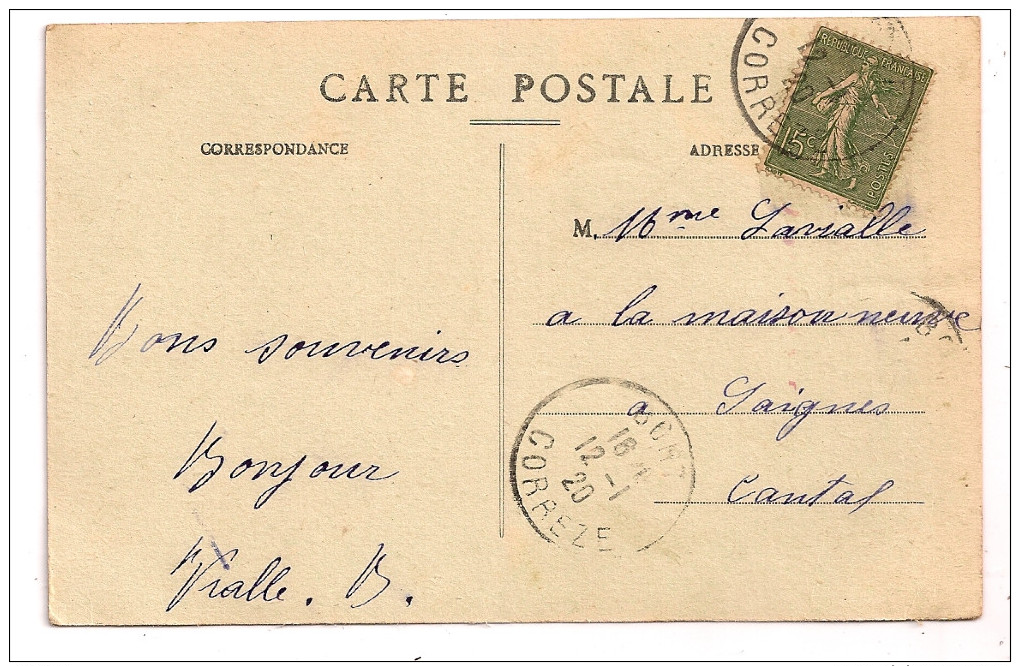 CARTE POSTALE
CORRESPONDANCE
ADRESSE
REPUBLIQUE FRANÇAISE
15c
POSTES
CORREZE
M. Mme Lavialle
a la maison neuve
a Saignes
Cantal
Bons souvenirs
Bonjour
Vialle. B.
BORT
18
12 - 1
20
CORREZE